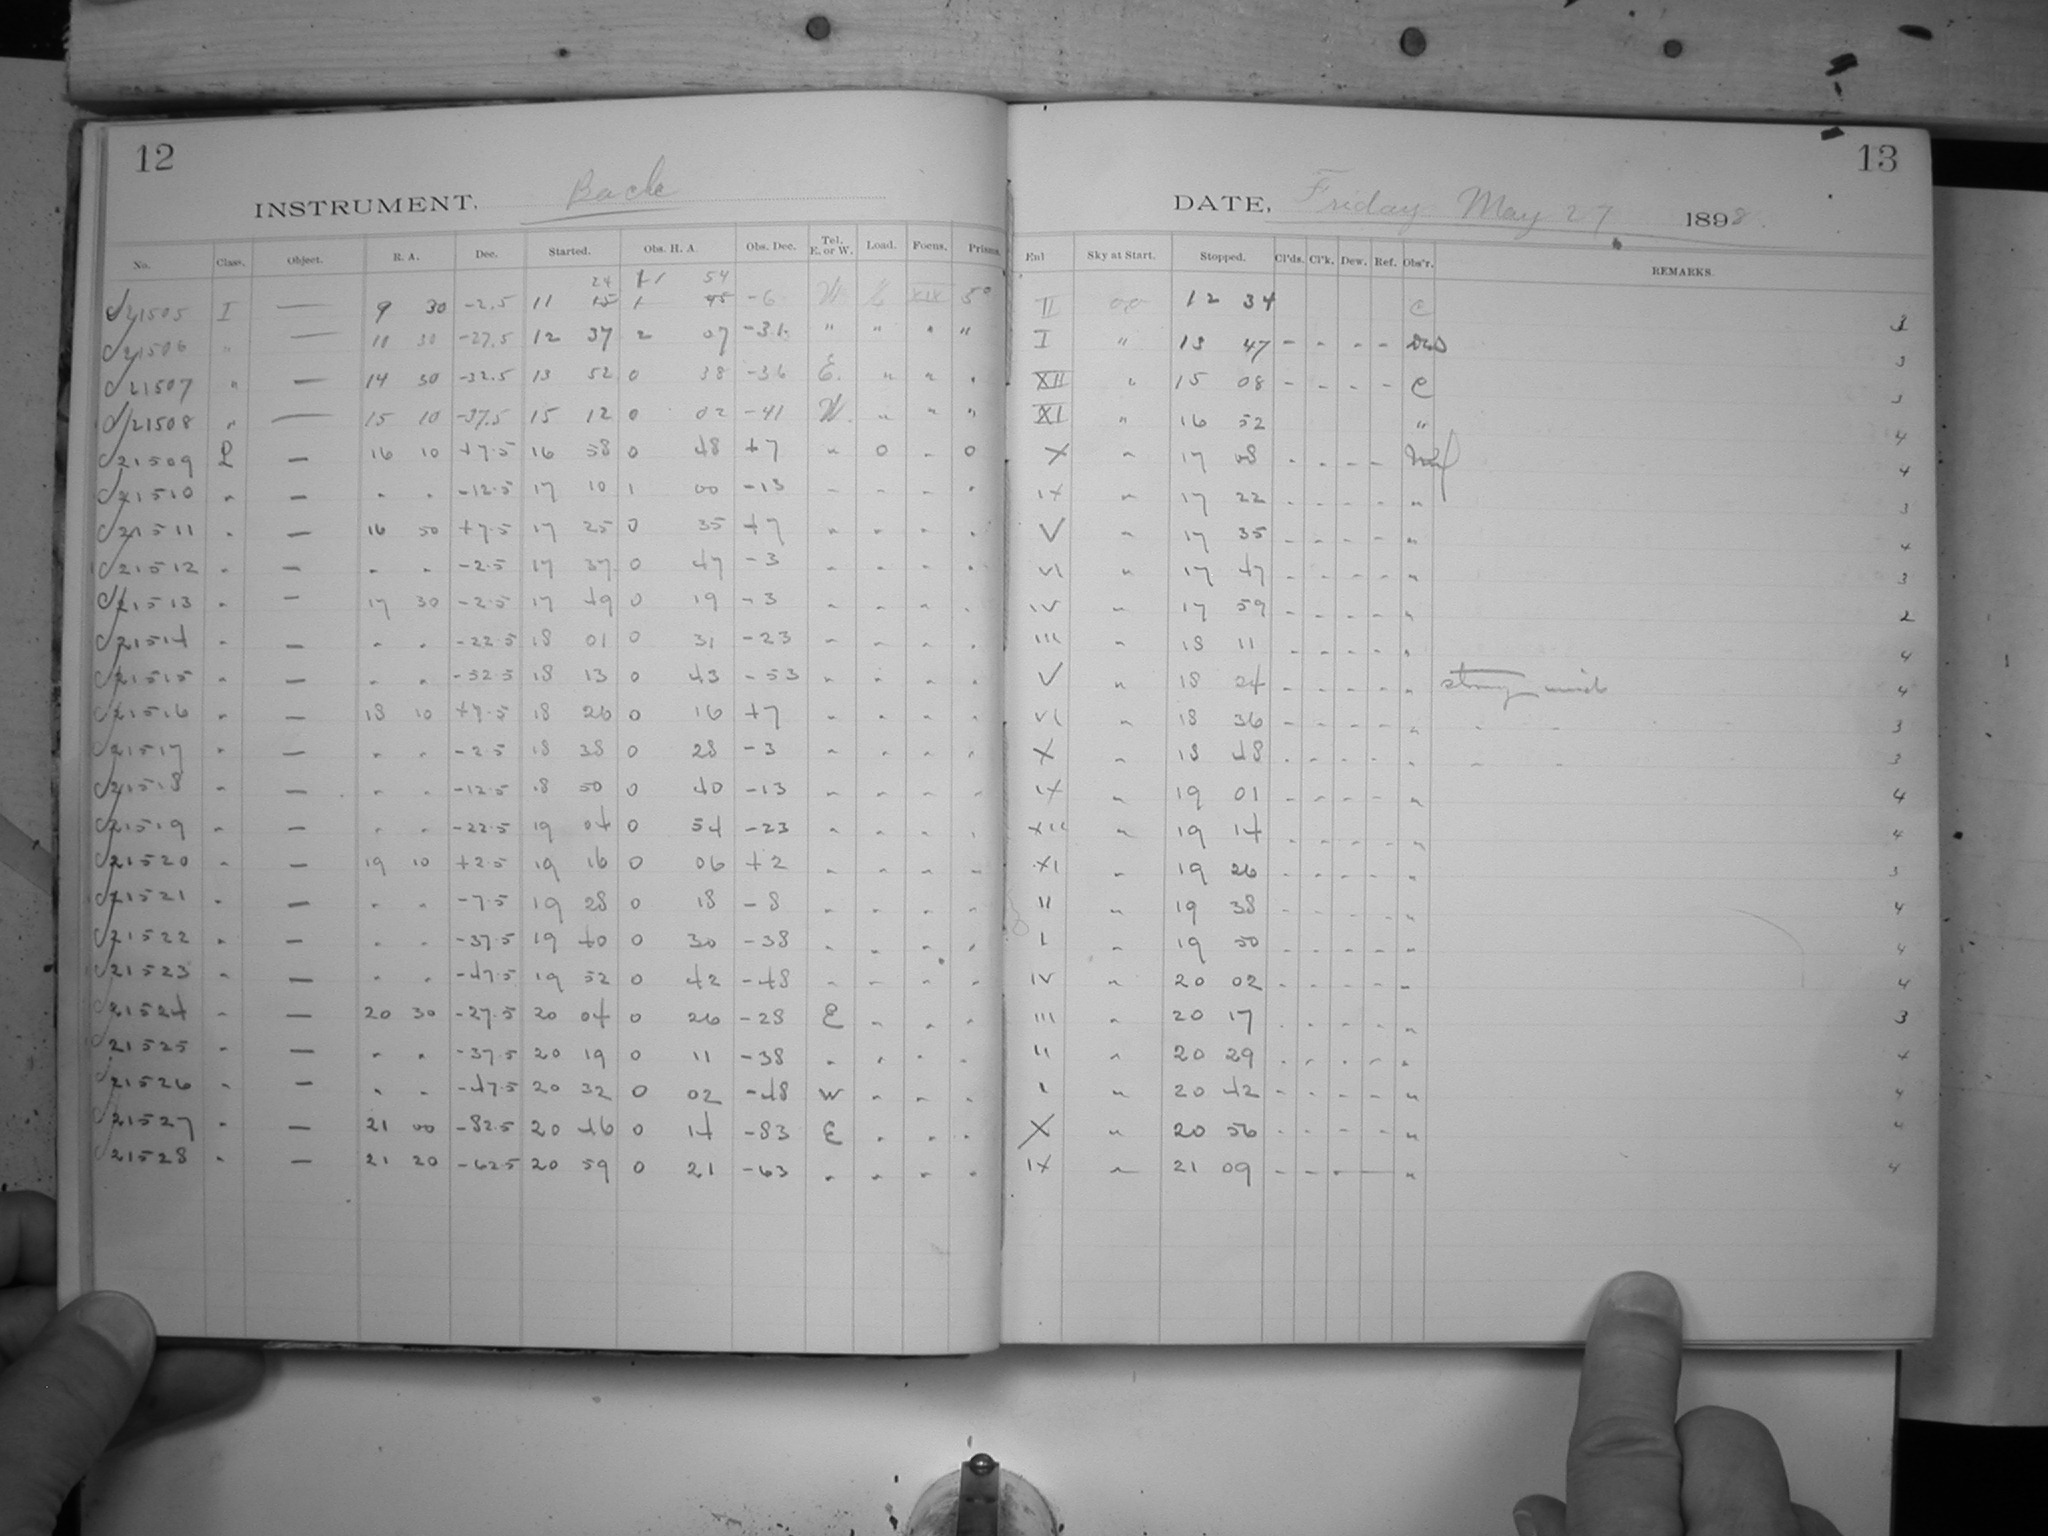 12
INSTRUMENT. Bache
No. Class. Object. R. A. Dec. Started. Obs. H. A. Obs. Dec. Tel. E. or W. Load. Focus. Prisms.
24 54
21505 I — 9 30 -2.5 11 15 1 45 -6 W XIX 5°
21506 " — 11 30 -27.5 12 37 2 07 -31 " " " "
21507 " — 14 30 -32.5 13 52 0 38 -36 E. " " "
21508 " — 15 10 -37.5 15 12 0 02 -41 W. " " "
21509 L — 16 10 +7.5 16 58 0 48 +7 " 0 " 0
21510 " — " " -12.5 17 10 1 00 -13 " " " "
21511 " — 16 50 +7.5 17 25 0 35 +7 " " " "
21512 " — " " -2.5 17 37 0 47 -3 " " " "
21513 " — 17 30 -2.5 17 49 0 19 -3 " " " "
21514 " — " " -22.5 18 01 0 31 -23 " " " "
21515 " — " " -52.5 18 13 0 43 -53 " " " "
21516 " — 18 10 +7.5 18 26 0 16 +7 " " " "
21517 " — " " -2.5 18 38 0 28 -3 " " " "
21518 " — " " -12.5 18 50 0 40 -13 " " " "
21519 " — " " -22.5 19 04 0 54 -23 " " " "
21520 " — 19 10 +2.5 19 16 0 06 +2 " " " "
21521 " — " " -7.5 19 28 0 18 -8 " " " "
21522 " — " " -37.5 19 40 0 30 -38 " " " "
21523 " — " " -47.5 19 52 0 42 -48 " " " "
21524 " — 20 30 -27.5 20 04 0 26 -28 E " " "
21525 " — " " -37.5 20 19 0 11 -38 " " " "
21526 " — " " -47.5 20 32 0 02 -48 W " " "
21527 " — 21 00 -82.5 20 46 0 14 -83 E " " "
21528 " — 21 20 -62.5 20 59 0 21 -63 " " " "
13
DATE, Friday May 27 1898.
Enl Sky at Start. Stopped. Cl'ds. Cl'k. Dew. Ref. Obs'r. REMARKS.
II 12 34 C 3
I " 13 47 - - - - 3
XII " 15 08 - - - - C 3
XI " 16 52 " 4
X " 17 08 - - - - 4
IX " 17 22 - - - - " 3
V " 17 35 - - - - " 4
VI " 17 47 - - - - " 3
IV " 17 59 - - - - " 2
III " 18 11 - - - - " 4
V " 18 24 - - - - " strong wind 4
VI " 18 36 - - - - " " " 3
X " 18 48 - - - - " " " 3
IX " 19 01 - - - - " 4
XII " 19 14 - - - - " 4
XI " 19 26 - - - - " 3
II " 19 38 - - - - " 4
I " 19 50 - - - - " 4
IV " 20 02 - - - - " 4
III " 20 17 - - - - " 3
II " 20 29 - - - - " 4
I " 20 42 - - - - " 4
X " 20 56 - - - - " 4
IX " 21 09 - - - — " 4